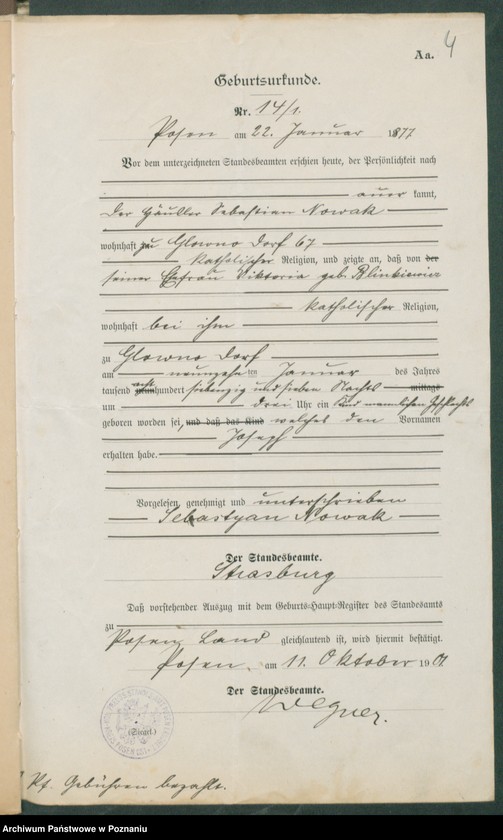 Aa. 4
Geburtsurkunde.
Nr. 14/1.
Posen am 22. Januar 1877
Vor dem unterzeichneten Standesbeamten erschien heute, der Persönlichkeit nach
kannt,
der Häusler Sebastian Nowak
wohnhaft zu Glowno Dorf 67
katholischer Religion, und zeigte an, daß von der
seiner Ehefrau Viktoria geb. Blinkiewicz
katholischer Religion,
wohnhaft bei ihm
zu Glowno Dorf
am neunzehnten Januar des Jahres
tausend acht hundert siebenzig und sieben Nachts mittags
um drei Uhr ein Kind männlichen Geschlechts
geboren worden sei, und daß das Kind welches den Vornamen
Joseph
erhalten habe.
Vorgelesen, genehmigt und unterschrieben
Sebastyan Nowak
Der Standesbeamte.
Strasburg
Daß vorstehender Auszug mit dem Geburts-Haupt-Register des Standesamts
zu
Posen Land gleichlautend ist, wird hiermit bestätigt.
Posen, am 11. Oktober 1901
Der Standesbeamte.
Wegner.
(Siegel.)
Pf. Gebühren bezahlt.
Archiwum Państwowe w Poznaniu